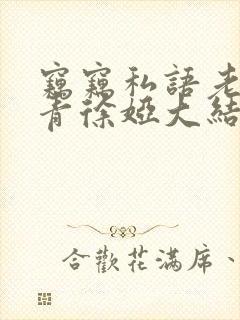 竊竊私語老
青徐婭大結
合歡花滿席、